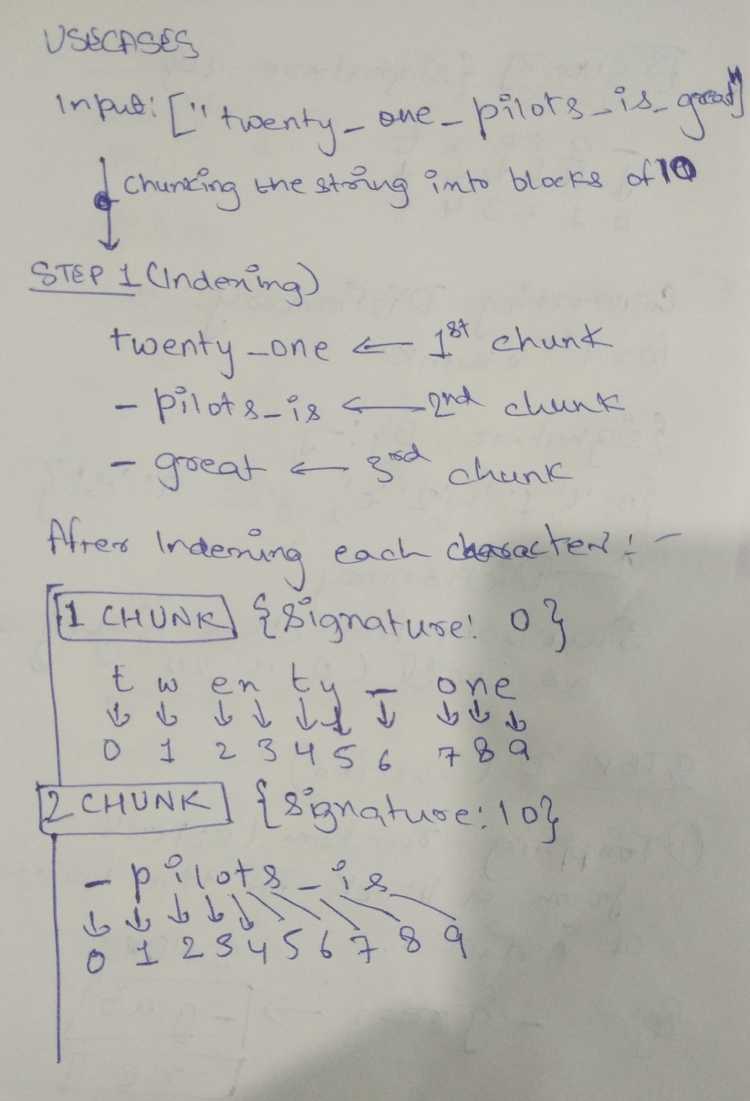 USECASES
Input: ["twenty_one_pilots_is_great"]
Chunking the string into blocks of 10
STEP 1 (Indexing)
twenty_one ← 1st chunk
_pilots_is ← 2nd chunk
_great ← 3rd chunk
After Indexing each character:-
1 CHUNK {signature: 0}
t w en ty _ one
↓ ↓ ↓ ↓ ↓ ↓ ↓ ↓ ↓ ↓
0 1 2 3 4 5 6 7 8 9
2 CHUNK {signature: 10}
_ p i l o t s _ i s
↓ ↓ ↓ ↓ ↓
0 1 2 3 4 5 6 7 8 9